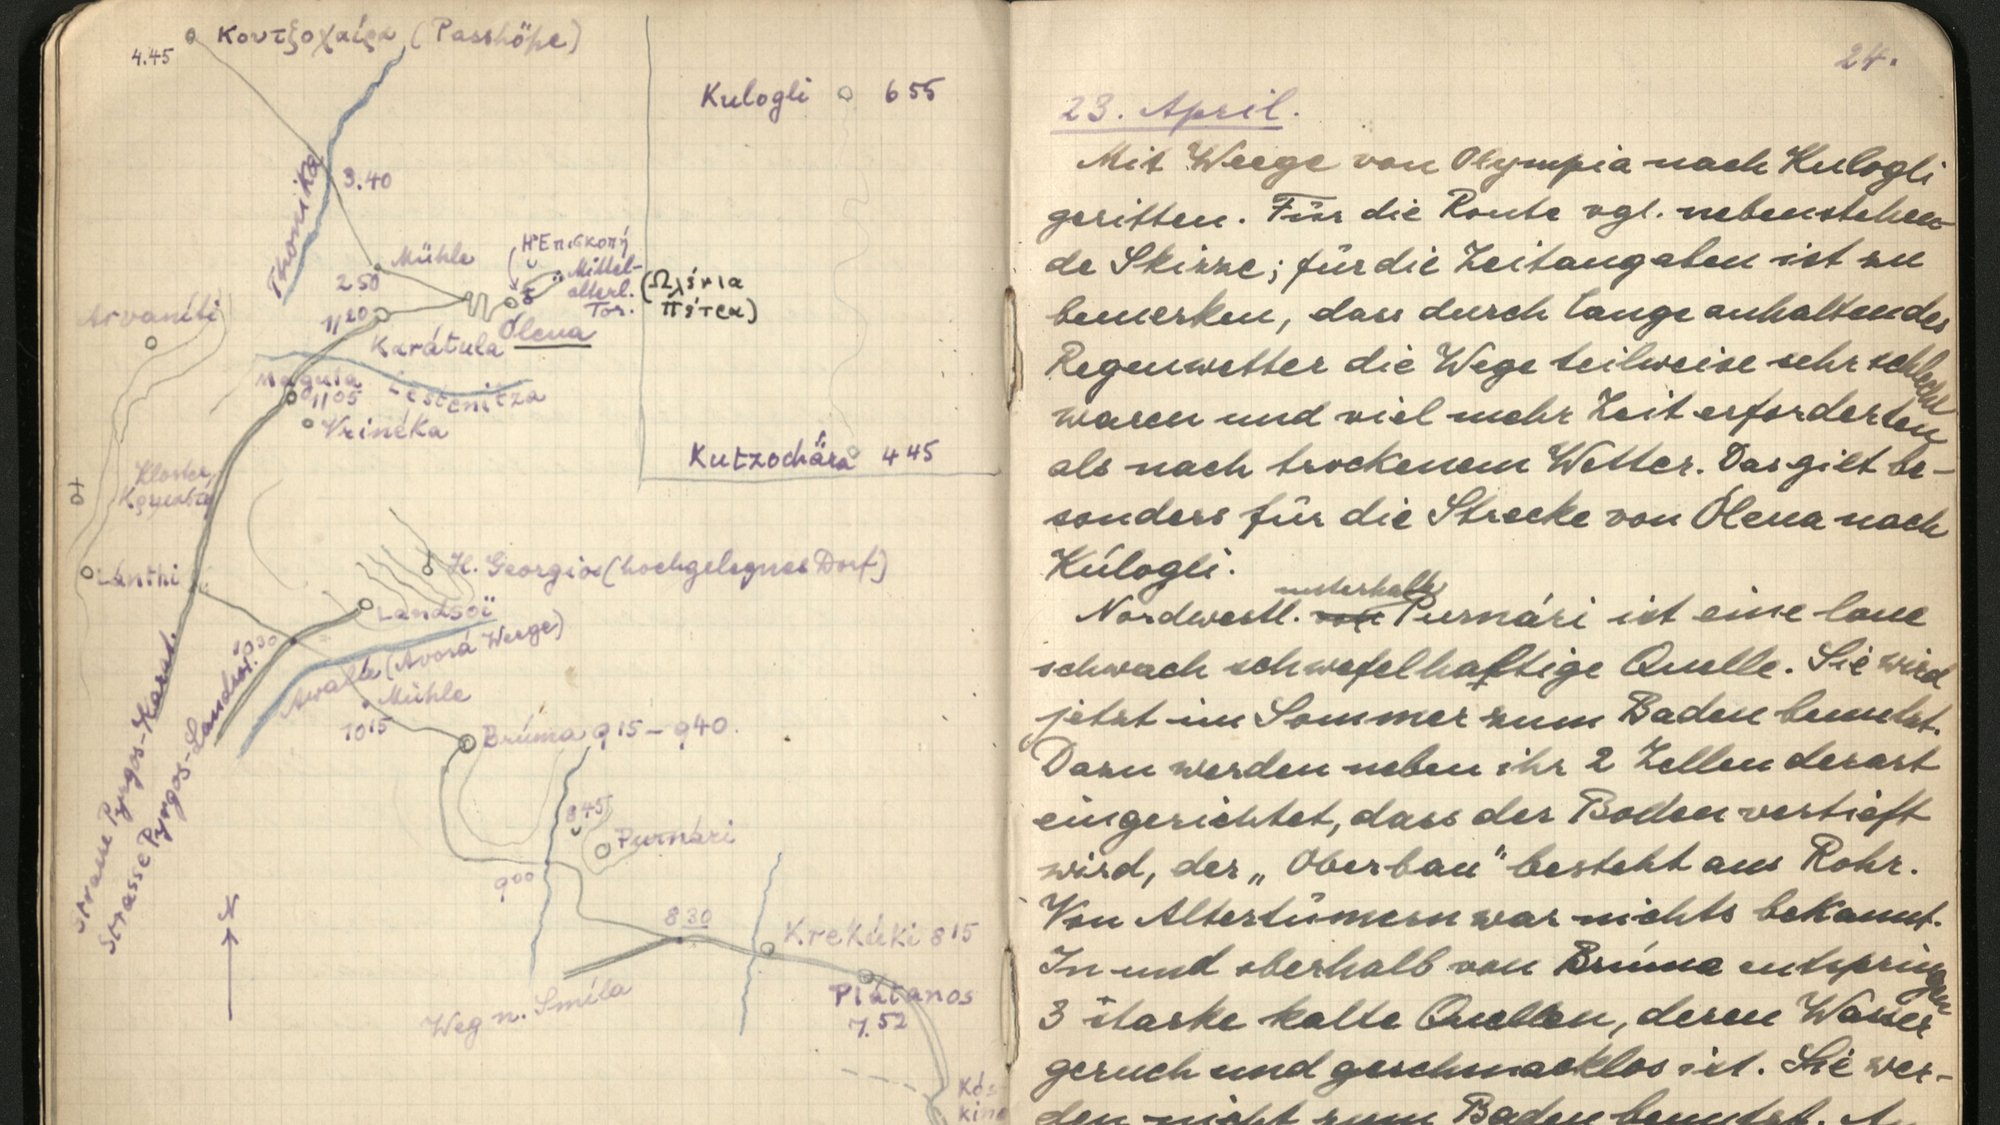 Κουτζοχαίρα (Passhöhe)
4.45
Kulogli 6 55
Thonika
3.40
Mühle
2 50
Η Επισκοπή
Mittel-
alterl.
Tor.
(Ωλένια
πέτρα)
11 20
Ólena
Karátula
Arvaníti
Magula
11 05
Lestenitza
Vrinéka
Kutzochära 4 45
Kloster
Lánthi
H. Georgios (hochgelegnes Dorf)
Landsoï
10 30
Awali (Avorá Weege)
Mühle
10 15
Strasse Pyrgos-Karat.
Strasse Pyrgos-Landsoï.
Brúma 9 15 – 9 40.
8 45
Purnári
9 00
8 30
Krekúki 8 15
Weg n. Smíla
Plátanos
7.52
Kós-
kina
24.
23. April.
Mit Weege von Olympia nach Kulogli
geritten. Für die Route vgl. nebenstehen-
de Skizze; für die Zeitangaben ist zu
bemerken, dass durch lange anhaltendes
Regenwetter die Wege teilweise sehr schlecht
waren und viel mehr Zeit erforderten
als nach trockenem Wetter. Das gilt be-
sonders für die Strecke von Ólena nach
Kúlogli.
unterhalb
Nordwestl. von Purnári ist eine laue
schwach schwefelhaftige Quelle. Sie wird
jetzt im Sommer zum Baden benutzt.
Dazu werden neben ihr 2 Zellen derart
eingerichtet, dass der Boden vertieft
wird, der „Oberbau" besteht aus Rohr.
Von Altertümern war nichts bekannt.
In und oberhalb von Brúma entspringen
3 starke kalte Quellen, deren Wasser
geruch und geschmacklos ist. Sie wer-
den nicht zum Baden benutzt. An